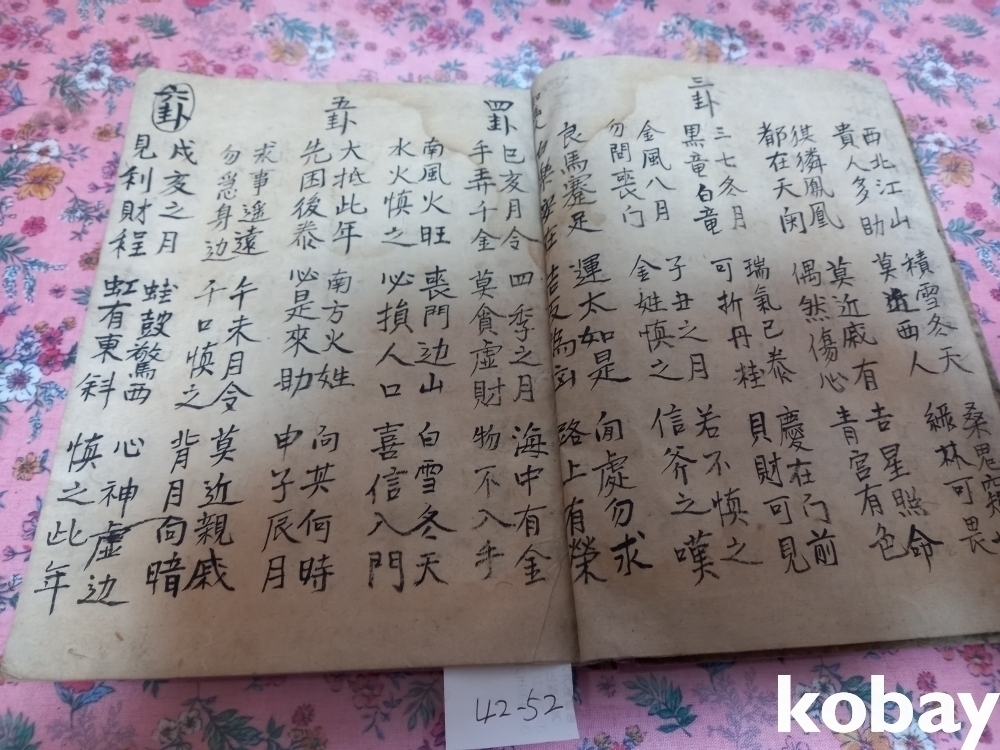 西北江山
貴人多助
積雪冬天
莫近西人
綠林可畏
鳳凰
都在天
莫近戚有
偶然傷心
吉星照命
青宮有色
三卦
三七冬月
黑竜白竜
瑞氣已泰
可折丹桂
慶在门前
貝財可見
金風八月
勿問喪门
子丑之月
金姓慎之
若不慎之
信斧之嘆
良馬蹇足
運太如是
處勿求
路上有榮
四卦
巳亥月令
手弄千金
四季之月
莫貪虛財
海中有金
物不入手
南風火旺
水火慎之
喪門边山
必損人口
白雪冬天
喜信入門
五卦
大抵此年
先困後泰
南方火姓
必是來助
向其何時
申子辰月
求事遥遠
勿忌身边
午未月令
千口慎之
莫近親戚
背月向暗
六卦
戌亥之月
見利財程
蛙鼓驚西
虹有東斜
心神虛边
慎之此年
42-52
kobay